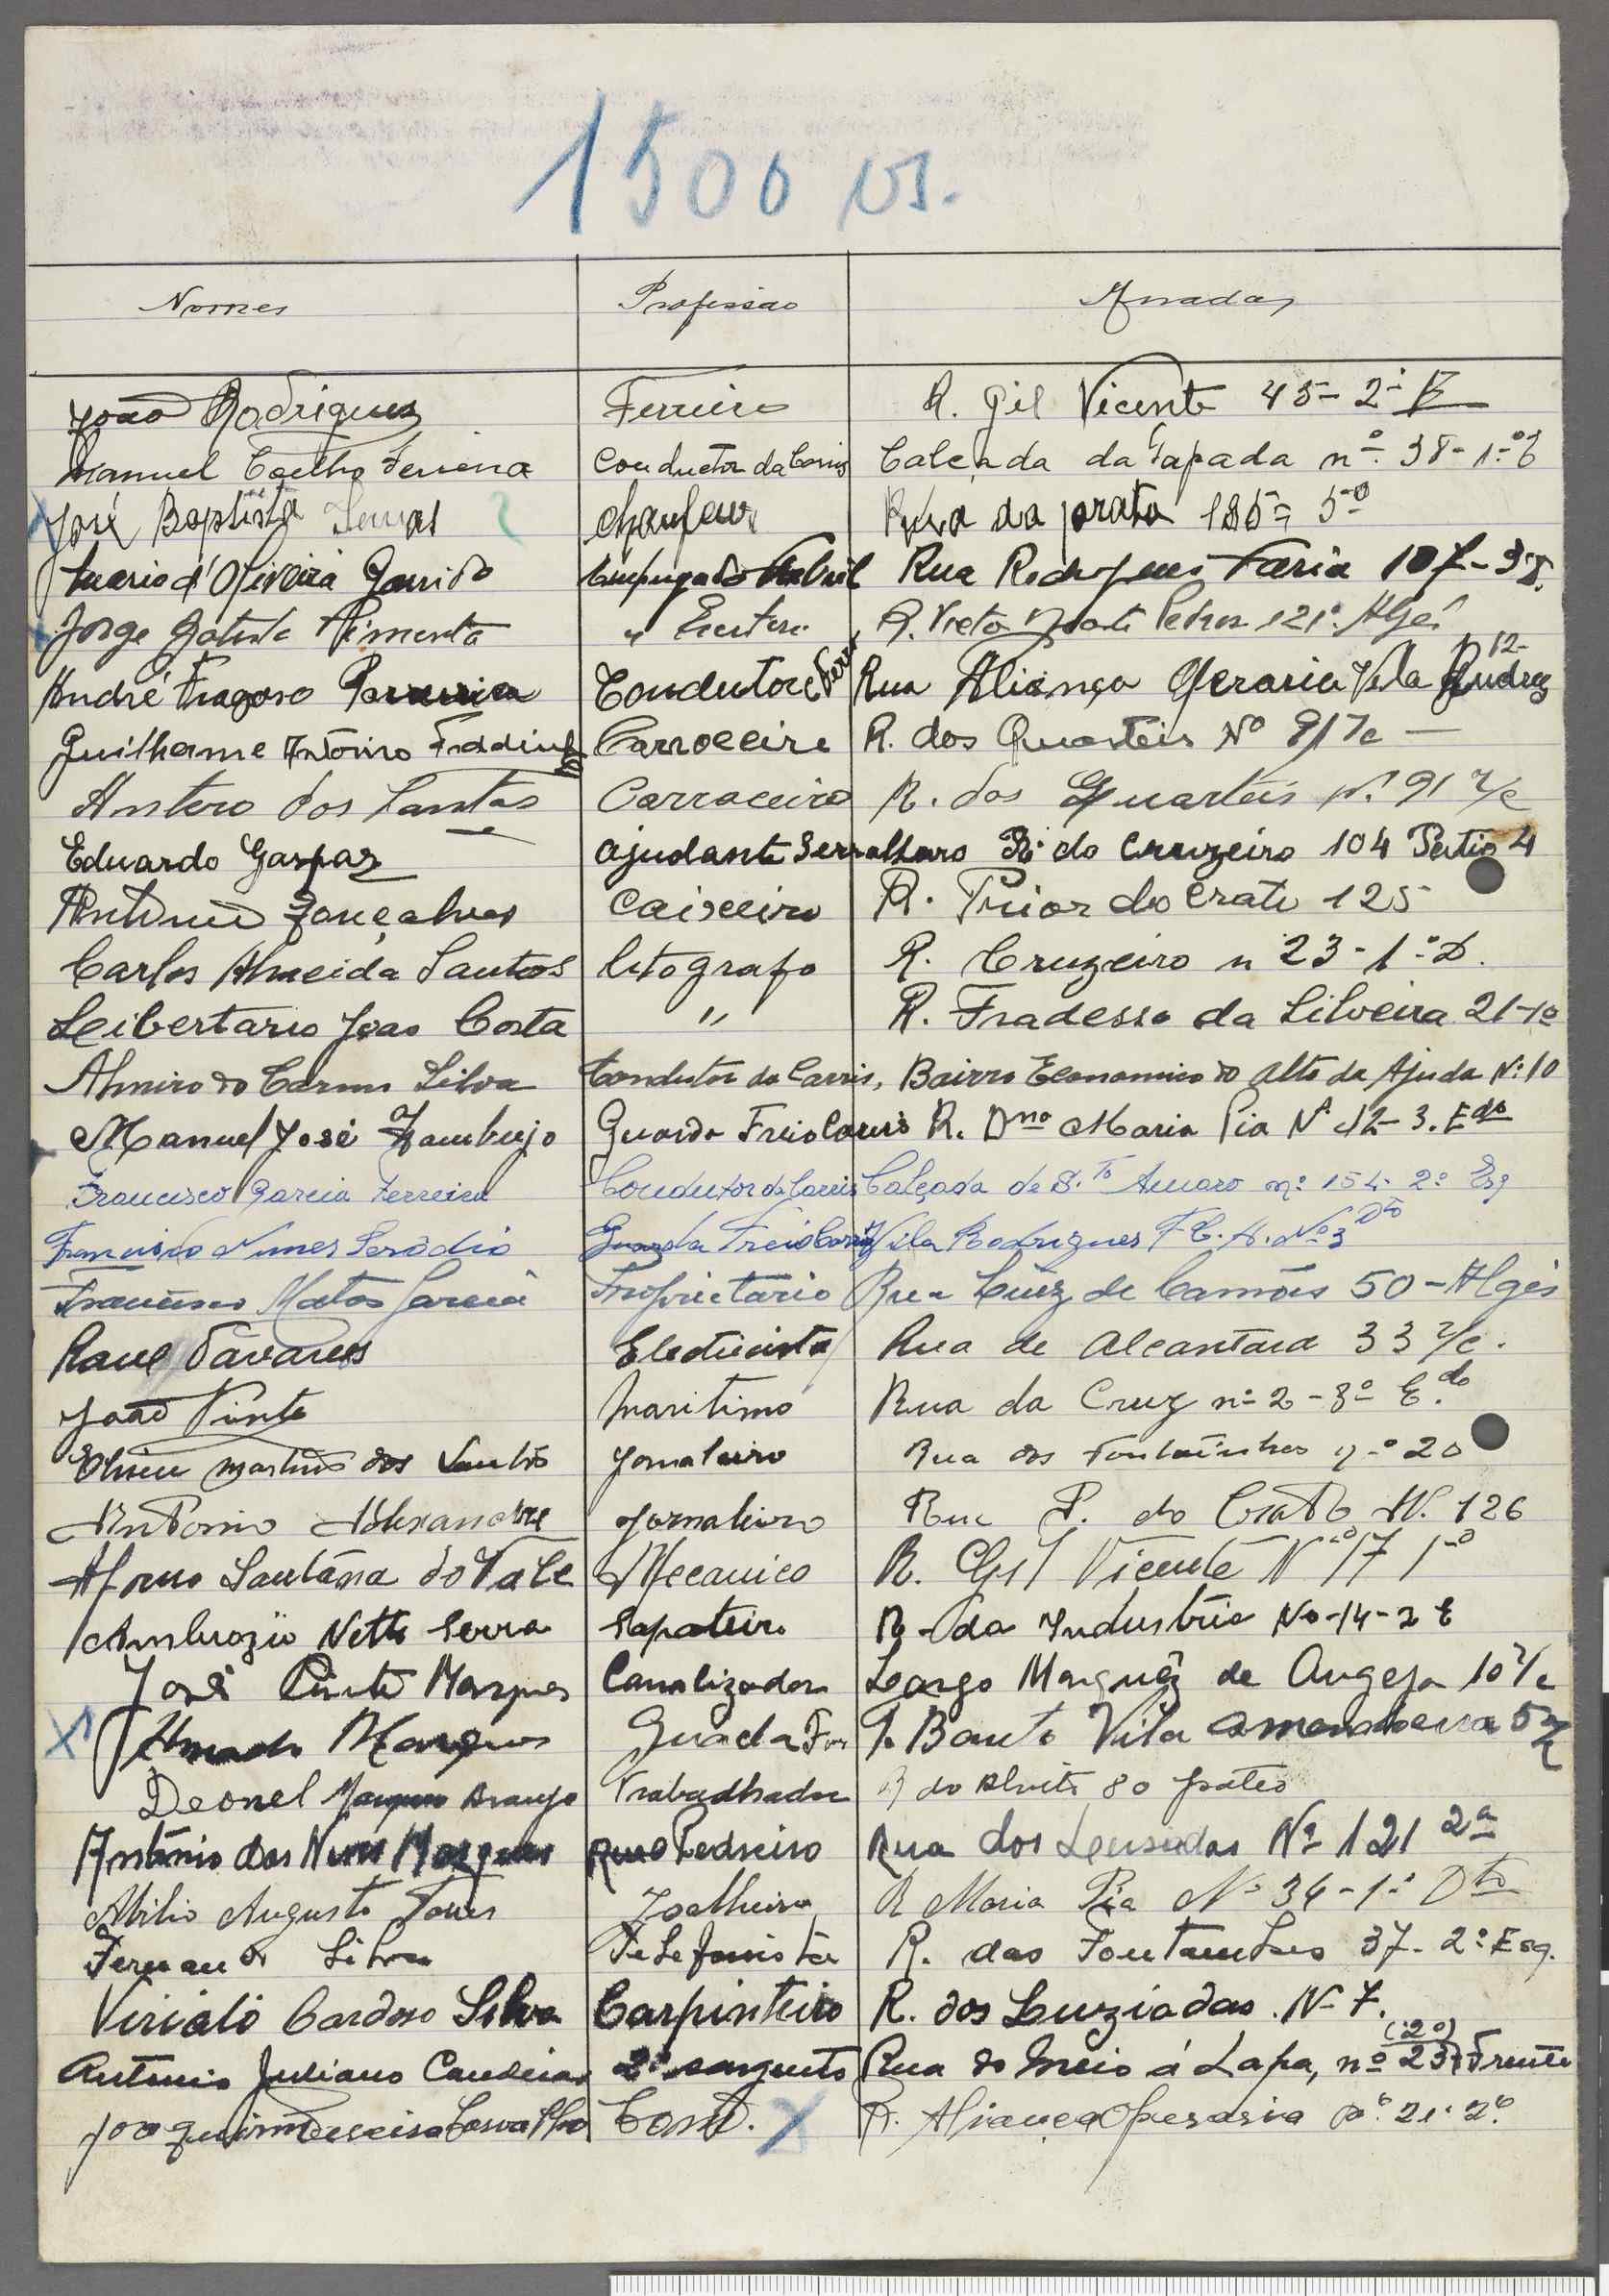 1500 vs.
Nomes Profissão Moradas
João Rodrigues Ferreiro R. Gil Vicente 45-2º E
Manuel Coelho Ferreira Conductor da Carris Calçada da Tapada nº 38-1º E
José Baptista chaufeur Rua da prata 185= 5º
d'Oliveira Garrido Rua Rodrigues Faria 107-3º
Jorge Batista Pimenta " 121º Algés
André Fragoso Condutor Rua Aliança Operaria Vila 12-
Guilherme António Carroceiro R. dos Quarteis Nº 91 r/c
Antero dos Santos Carroceiro R. dos Quarteis Nº 91 r/c
Eduardo Gaspar ajudante Serralharo R. do Cruzeiro 104 Patio 4
António Gonçalves Caixeiro R. Prior do Crato 125
Carlos Almeida Santos litografo R. Cruzeiro n 23-1º D.
Leibertario João Costa " R. Fradesso da Silveira 21-1º
Almiro do Carmo Silva Condutor da Carris, Bairro Economico do Alto da Ajuda Nº 10
Manuel José Zambujo Guarda Freio Carris R. Dna Maria Pia Nº 12-3. Edo
Francisco Garcia Ferreira Condutor da Carris Calçada de S.to Amaro nº 154. 2º Esq
Francisco Nunes Serôdio Guarda Freio Carris Vila Rodrigues F C. A. Nº 3 Dto
Francisco Matos Garcia Proprietario Rua Luiz de Camões 50-Algés
Raul Tavares Electricista Rua de Alcantara 33 r/c.
João Pinto Maritimo Rua da Cruz nº 2-3º E.do
Martins dos Santos Jornaleiro Rua das Fontainhas nº 20
Antonio Alexandre Jornaleiro Rua P. do Crato N. 126
Afonso Santâna do Vale Mecanico R. Gil Vicente Nº 17 1º
Ambrozio Netto Serra Sapateiro R. da Industria Nº-14-2 E
José Pinto Marques Canalizador Largo Marquêz de Angeja 10 r/c
Amado Marques Guada Vila 5
Deonel Marques Araujo Trabadhador R do Alvito 80 pateo
António das Neves Marques Pedreiro Rua dos Lusadas Nº 121 2º
Abilio Augusto Torres Joalheiro R Maria Pia Nº 36-1º Dto
Fernando Silva Telefonista R. das Fontainhas 37-2º Esq.
Viriato Cardoso Silva Carpinteiro R. dos Luziadas. Nº 7.
Antonio Juliano Candeias 2º sargento Rua do Meio á Lapa, nº 23 (2º) Frente
Joaquim Carvalho Cond. R. Aliança Operaria nº 21. 2º